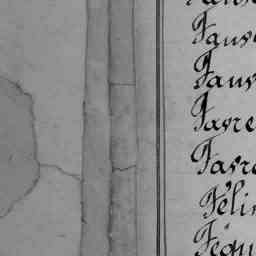 Fauv
Fauv
Favre
Favre
Félin
Féqu